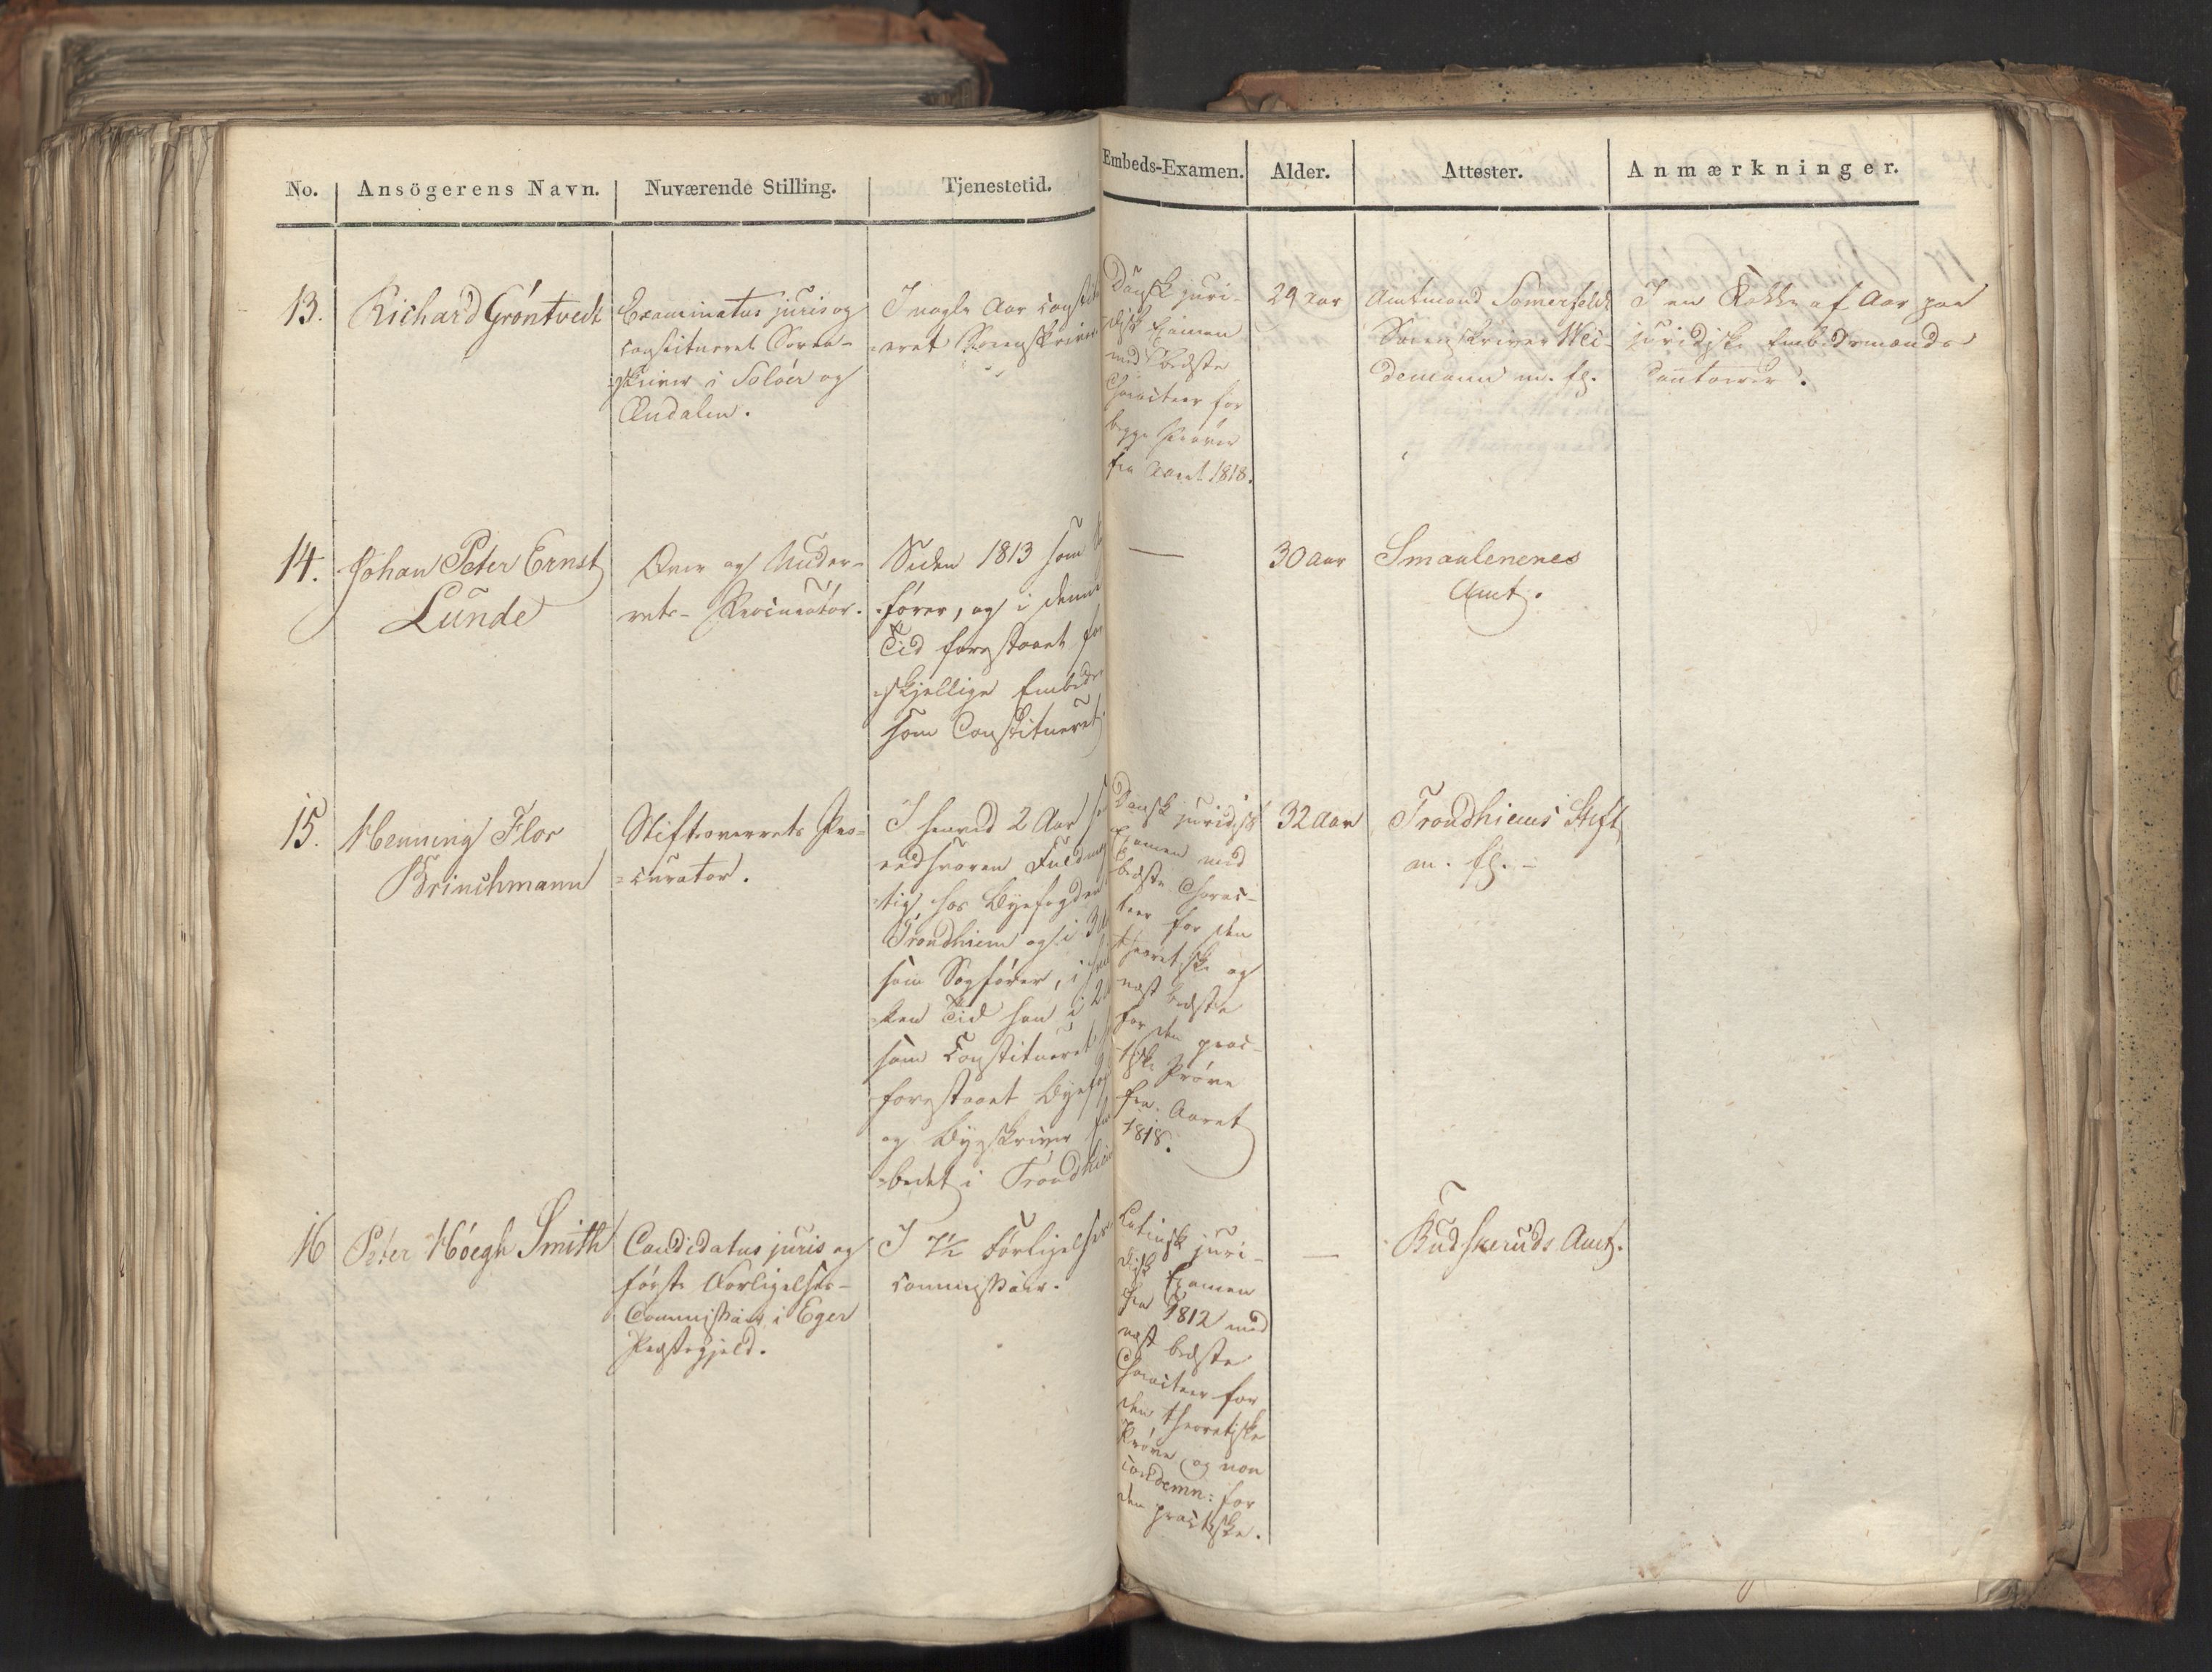 No. Ansögerens Navn. Nuværende Stilling. Tjenestetid. Embeds-Examen. Alder. Attester. Anmærkninger.
13.
Richard Gröntvedt
Examinatus juris og
constitueret Soren-
skriver i Solöer og
Oudalen.
I nogle Aar constitu
eret Sorenskriver
Dansk juri-
disk Examen
med bedste
Characteer for
begge Prøver
fra Aaret 1818.
29 Aar
Amtmand Somerfeldt
Sorenskriver Wei-
demann m. fl.
I en Række af Aar paa
juridiske Embedsmænds
Contoirer.
14.
Johan Peter Ernst
Lunde
Over og Under-
rets-Procurator.
Siden 1813 som
fører, og i denne
Tid forestaaet for
skjellige Embeder
som Constitueret.
—
30 Aar
Smaalenenes
Amt.
15.
Henning Flor
Brinchmann
Stiftsoverrets Pro-
curator.
I henved 2 Aar
eedsvoren Fuldmæg
tig hos Byefogden
Trondhiem og i 3
som Sagfører, i hvil
ken Tid han i 2
som Constitueret
forestaaet Byefog
og Byeskriver
bedet i Trondhiem
Dansk juridisk
Examen med
bedste Charac-
teer for den
theoretiske og
næst bedste
for den prac-
tiske Prøve
fra Aaret
1818.
32 Aar
Trondhiems Stift
m. fl. -
16
Peter Höegh Smith
Candidatus juris og
første Forligelses-
Commissair i Eger
Præstegjeld.
I 7½ Forligelses
commissair.
Latinsk juri-
disk Examen
fra 1812 med
næst bedste
Characteer for
den theoretiske
Prøve og non
contemn: for
den practiske.
—
Budskeruds Amt.